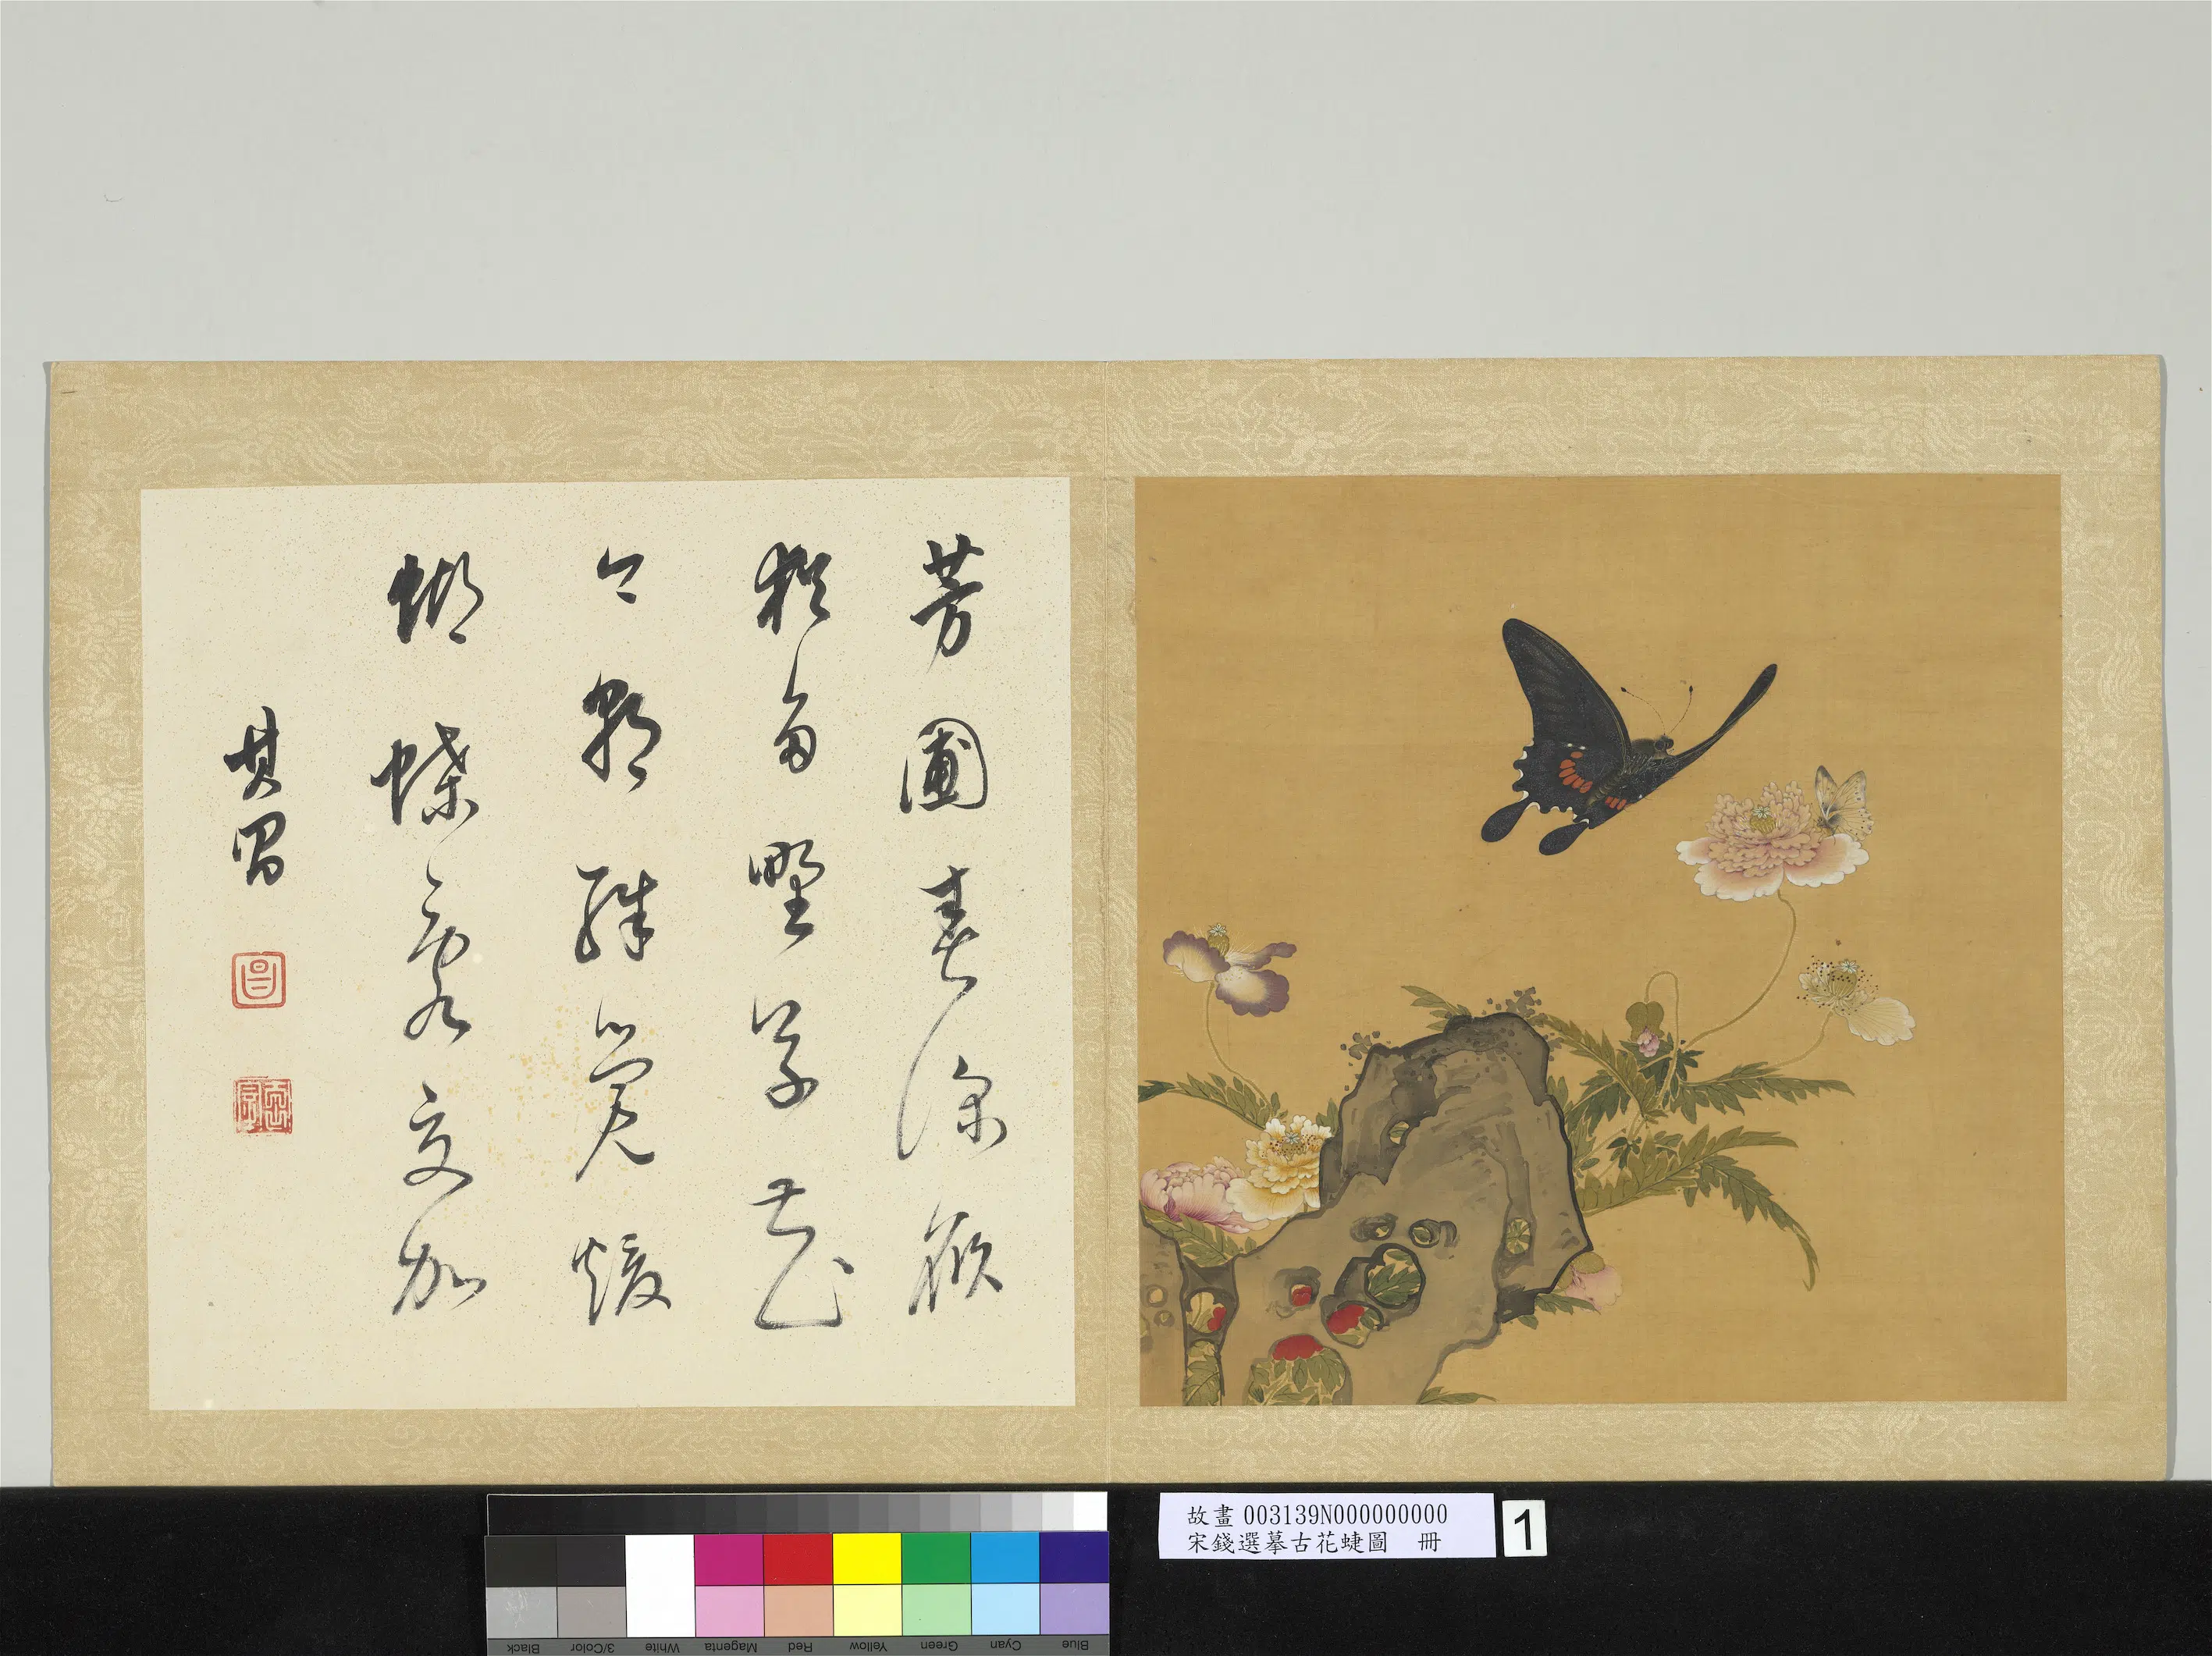 芳圃春深
猶野草花
今朝殊覺煖
蝴蝶交加
其昌
昌
故畫 003139N000000000
宋錢選摹古花蜨圖 冊
1
Blue Cyan Green Yellow Red Magenta White 3/Color Black